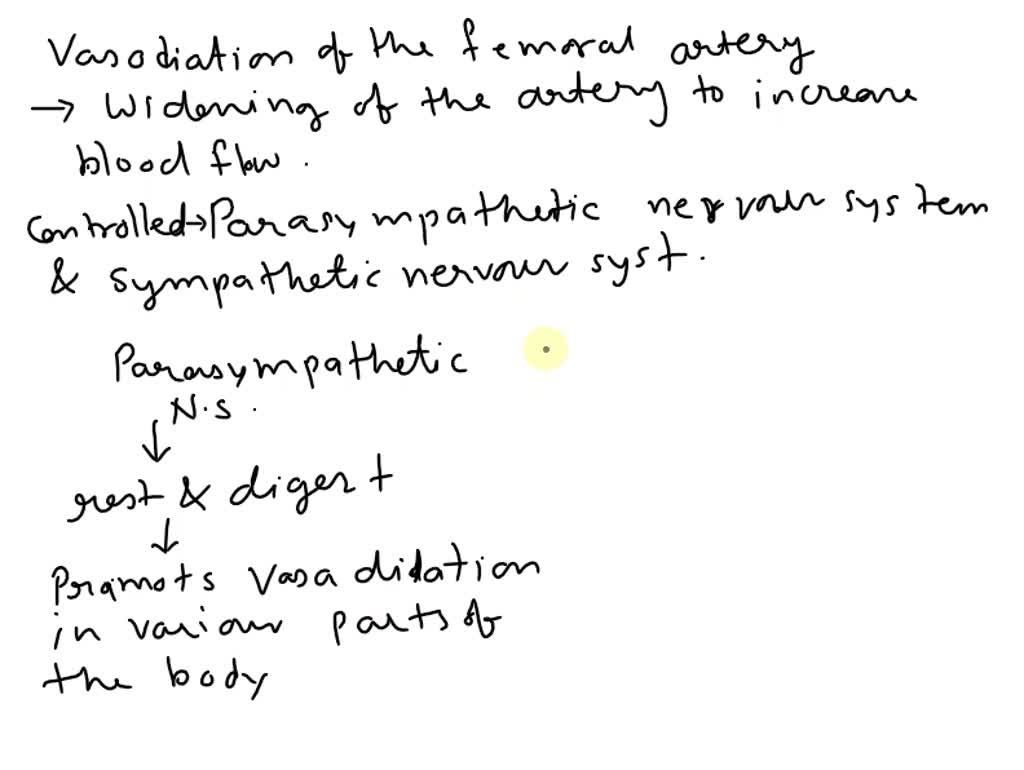 Vasodiation of the femoral artery
→ Widening of the artery to increase
blood flow.
Controlled→Parasympathetic nervous system
& sympathetic nervous syst.
Parasympathetic
N.S.
↓
rest & digest
↓
Pramots Vasa didation
in various parts of
the body